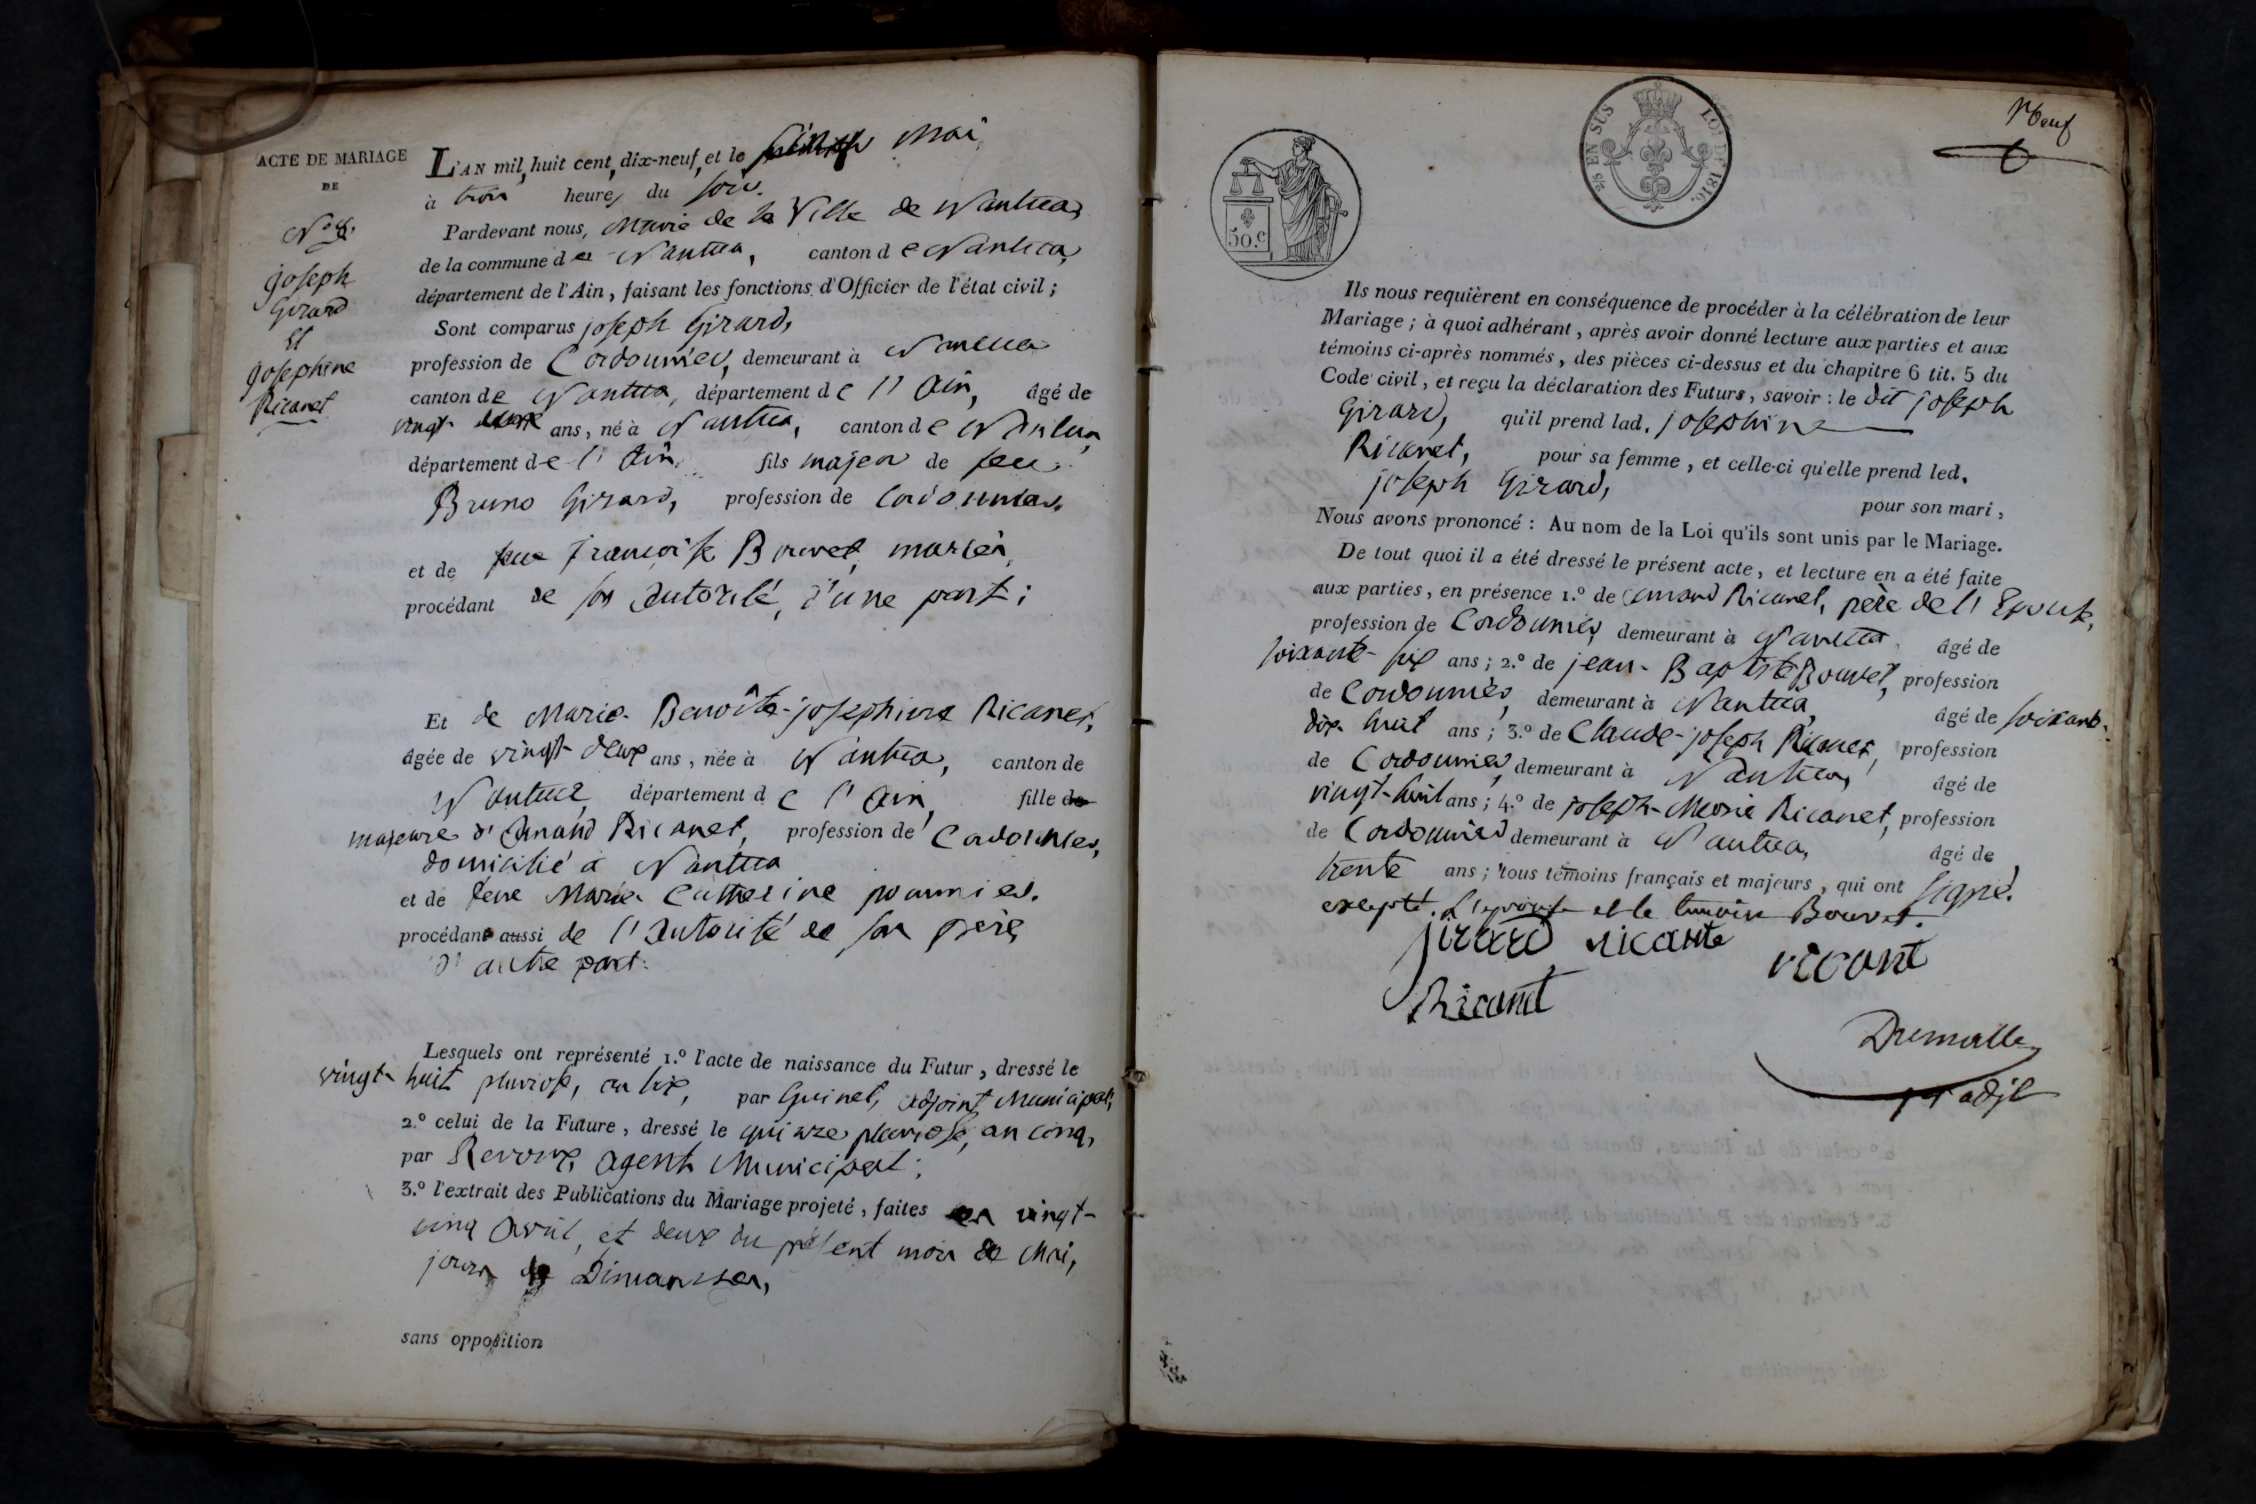 ACTE DE MARIAGE
DE
N.º 8.
joseph
Girard
Et
josephine
Ricanet
L'AN mil huit cent dix-neuf, et le Mai,
à trois heures du soir.
Pardevant nous, Maire de la Ville de Nantua,
de la commune de Nantua, canton de Nantua,
département de l'Ain, faisant les fonctions d'Officier de l'état civil;
Sont comparus joseph Girard,
profession de Cordonnier, demeurant à Nantua
canton de Nantua, département de l'Ain, âgé de
vingt ans, né à Nantua, canton de Nantua,
département de l'Ain, fils majeur de feu
Bruno Girard, profession de Cordonnier,
et de feue françoise Bouvet, mariés,
procédant de son autorité, d'une part;
Et de Marie-Benoîte-josephine Ricanet,
âgée de vingt-deux ans, née à Nantua, canton de
Nantua, département de l'Ain, fille de
majeure d'Amand Ricanet, profession de Cordonnier,
domicilié à Nantua
et de feue Marie Catherine
procédant aussi de l'autorité de son père,
d'autre part.
Lesquels ont représenté 1.º l'acte de naissance du Futur, dressé le
vingt-huit pluviose, an six, par Guinet, adjoint Municipal,
2.º celui de la Future, dressé le quinze pluviose, an cinq,
par Revoux, agent Municipal;
3.º l'extrait des Publications du Mariage projeté, faites en vingt-
cinq avril, et deux du présent mois de Mai,
jours de Dimanches,
sans opposition
Neuf
50.C
S/S EN SUS LOI DE 1816.
Ils nous requièrent en conséquence de procéder à la célébration de leur
Mariage; à quoi adhérant, après avoir donné lecture aux parties et aux
témoins ci-après nommés, des pièces ci-dessus et du chapitre 6 tit. 5 du
Code civil, et reçu la déclaration des Futurs, savoir: le dit joseph
Girard, qu'il prend lad. josephine
Ricanet, pour sa femme, et celle-ci qu'elle prend led.
joseph Girard,
pour son mari,
Nous avons prononcé: Au nom de la Loi qu'ils sont unis par le Mariage.
De tout quoi il a été dressé le présent acte, et lecture en a été faite
aux parties, en présence 1.º de amand Ricanet, père de l'Epouse,
profession de Cordonnier, demeurant à Nantua, âgé de
soixante-six ans; 2.º de jean-Baptiste Bouvet, profession
de Cordonnier, demeurant à Nantua, âgé de soixante-
dix-huit ans; 3.º de Claude-joseph Ricanet, profession
de Cordonnier, demeurant à Nantua, âgé de
vingt-huit ans; 4.º de joseph-Marie Ricanet, profession
de Cordonnier demeurant à Nantua, âgé de
trente ans; tous témoins français et majeurs, qui ont signé.
excepté l'epouse et le temoin Bouvet.
jirard ricante ricant
Ricanet